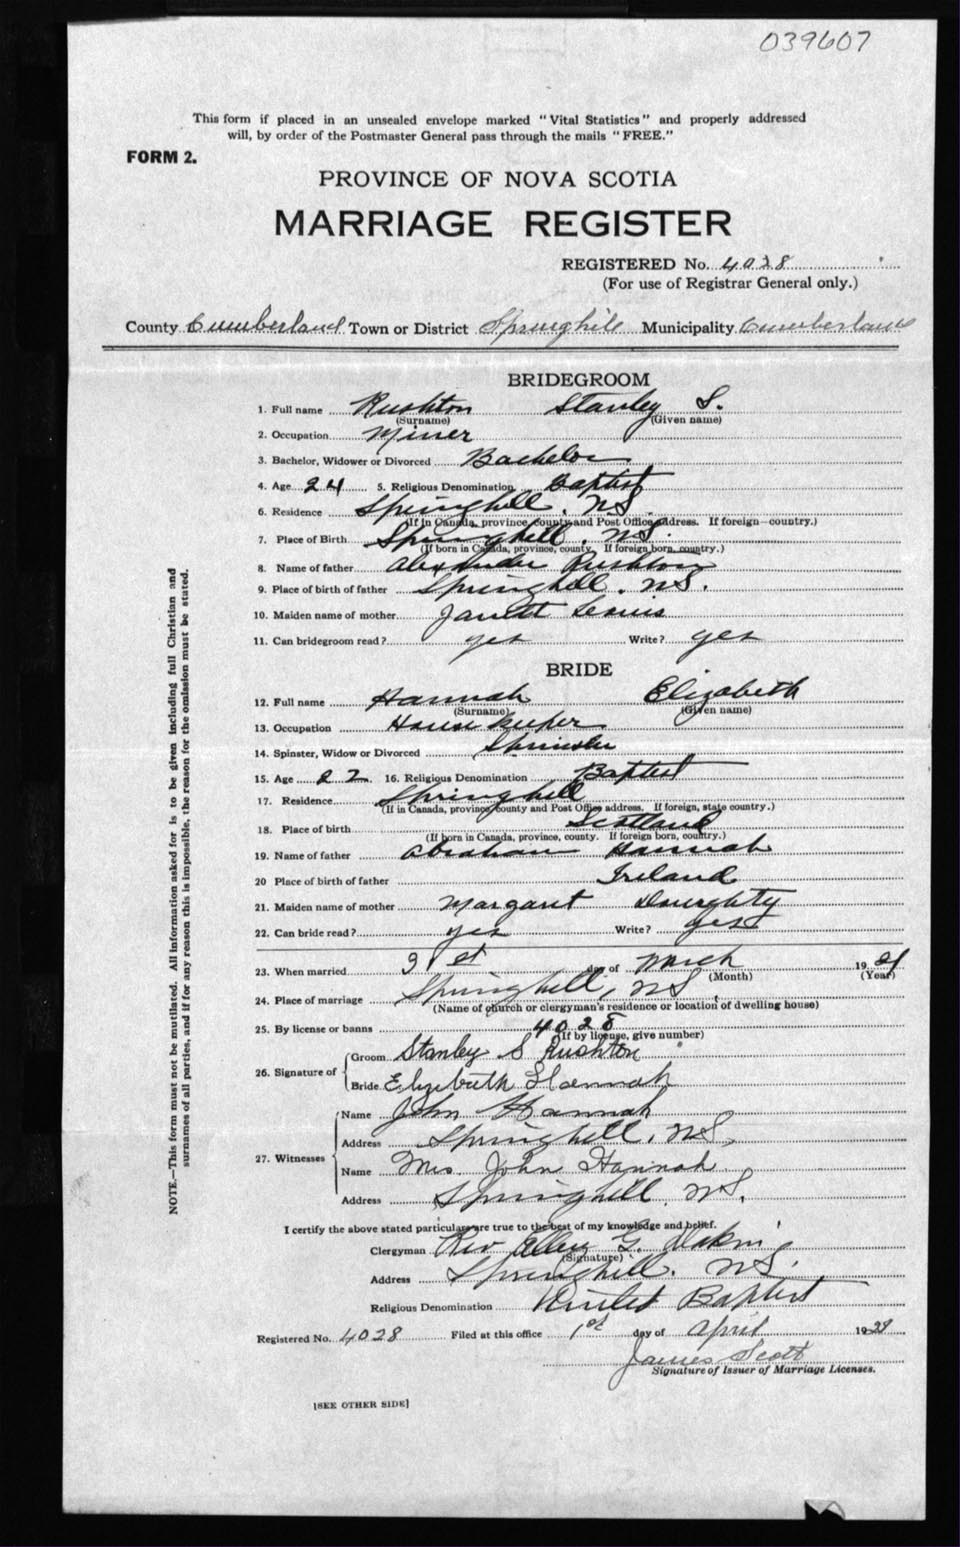 039607
This form if placed in an unsealed envelope marked "Vital Statistics" and properly addressed
will, by order of the Postmaster General pass through the mails "FREE."
FORM 2.
PROVINCE OF NOVA SCOTIA
MARRIAGE REGISTER
REGISTERED No. 4028
(For use of Registrar General only.)
County Cumberland Town or District Springhill Municipality Cumberland
BRIDEGROOM
1. Full name Rushton Stanley S.
(Surname) (Given name)
2. Occupation Miner
3. Bachelor, Widower or Divorced Bachelor
4. Age 24 5. Religious Denomination Baptist
6. Residence Springhill, N.S.
(If in Canada, province, county and Post Office address. If foreign—country.)
7. Place of Birth Springhill, N.S.
(If born in Canada, province, county. If foreign born, country.)
8. Name of father Alexander Rushton
9. Place of birth of father Springhill, N.S.
10. Maiden name of mother Lewis
11. Can bridegroom read? yes Write? yes
BRIDE
12. Full name Hannah Elizabeth
(Surname) (Given name)
13. Occupation House keeper
14. Spinster, Widow or Divorced Spinster
15. Age 22 16. Religious Denomination Baptist
17. Residence Springhill
(If in Canada, province, county and Post Office address. If foreign, state country.)
18. Place of birth Scotland
(If born in Canada, province, county. If foreign born, country.)
19. Name of father Abraham Hannah
20 Place of birth of father Ireland
21. Maiden name of mother Margaret Doughty
22. Can bride read? yes Write? yes
23. When married 31st day of March 19
(Month) (Year)
24. Place of marriage Springhill, N.S.
(Name of church or clergyman's residence or location of dwelling house)
25. By license or banns 4028
(If by license, give number)
26. Signature of Groom Stanley S Rushton
Bride Elizabeth Hannah
27. Witnesses Name John Hannah
Address Springhill, N.S.
Name Mrs John Hannah
Address Springhill, N.S.
I certify the above stated particulars are true to the best of my knowledge and belief.
Clergyman Rev Allen G.
(Signature)
Address Springhill, N.S.
Religious Denomination United Baptist
Registered No. 4028 Filed at this office 1st day of April 19
James Scott
Signature of Issuer of Marriage Licenses.
[SEE OTHER SIDE]
NOTE.—This form must not be mutilated. All information asked for is to be given including full Christian and
surnames of all parties, and if for any reason this is impossible, the reason for the omission must be stated.